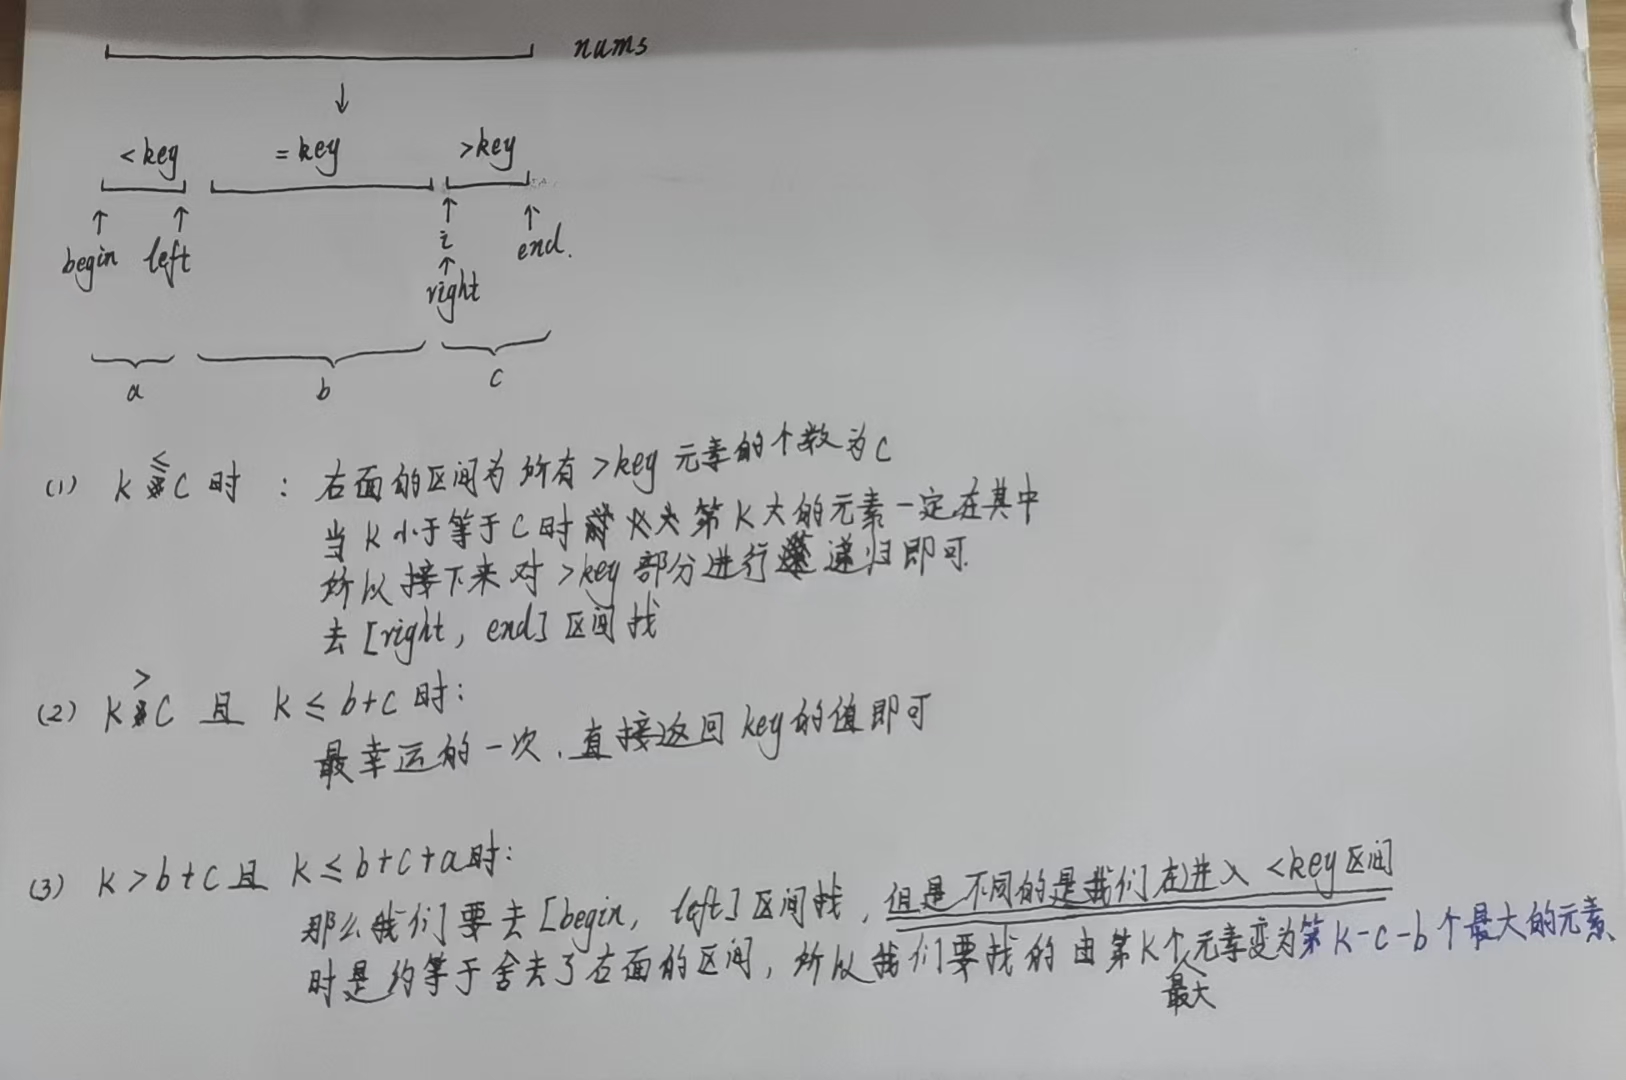 nums
↓
<key =key >key
↑ ↑ ↑ ↑
begin left i end.
↑
right
a b c
(1) K≤C时 : 右面的区间为所有>key元素的个数为C
当K小于等于C时 第K大的元素一定在其中
所以接下来对>key部分进行递归即可.
去[right, end]区间找
(2) K>C 且 K≤b+c时:
最幸运的一次.直接返回key的值即可
(3) K>b+c且 K≤b+c+a时:
那么我们要去[begin, left]区间找,但是不同的是我们在进入<key区间
时是约等于舍去了右面的区间,所以我们要找的由第K个最大元素变为第K-c-b个最大的元素